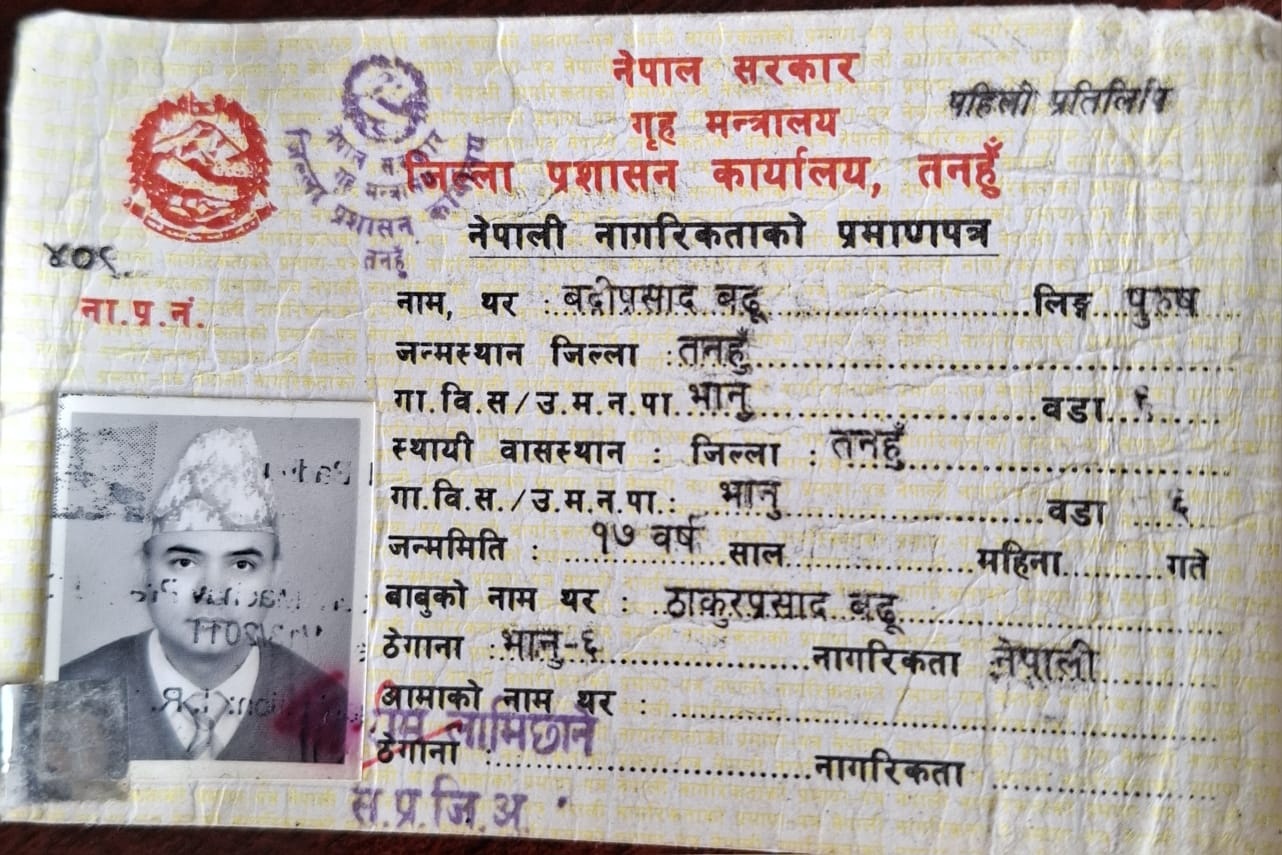 नेपाल सरकार
गृह मन्त्रालय
पहिली प्रतिलिपि
जिल्ला प्रशासन कार्यालय, तनहुँ
नेपाल सरकार
गृह मन्त्रालय
जिल्ला प्रशासन कार्यालय
तनहुँ
नेपाली नागरिकताको प्रमाणपत्र
४०९
ना.प्र.नं.
नाम, थर : बद्रीप्रसाद बढू लिङ्ग पुरुष
जन्मस्थान जिल्ला : तनहुँ
गा.वि.स/उ.म.न.पा. भानु वडा ६
स्थायी वासस्थान : जिल्ला : तनहुँ
गा.वि.स./उ.म.न.पा.: भानु वडा ६
जन्ममिति : १७ वर्ष साल महिना गते
बाबुको नाम थर : ठाकुरप्रसाद बढू
ठेगाना : भानु-६ नागरिकता नेपाली
आमाको नाम थर :
लामिछाने
ठेगाना : नागरिकता
स.प्र.जि.अ.